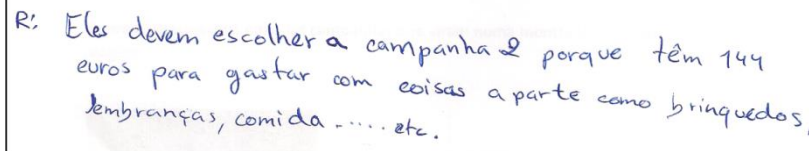 R: Eles devem escolher a campanha 2 porque têm 144
euros para gastar com coisas a parte como brinquedos,
lembranças, comida ..... etc.